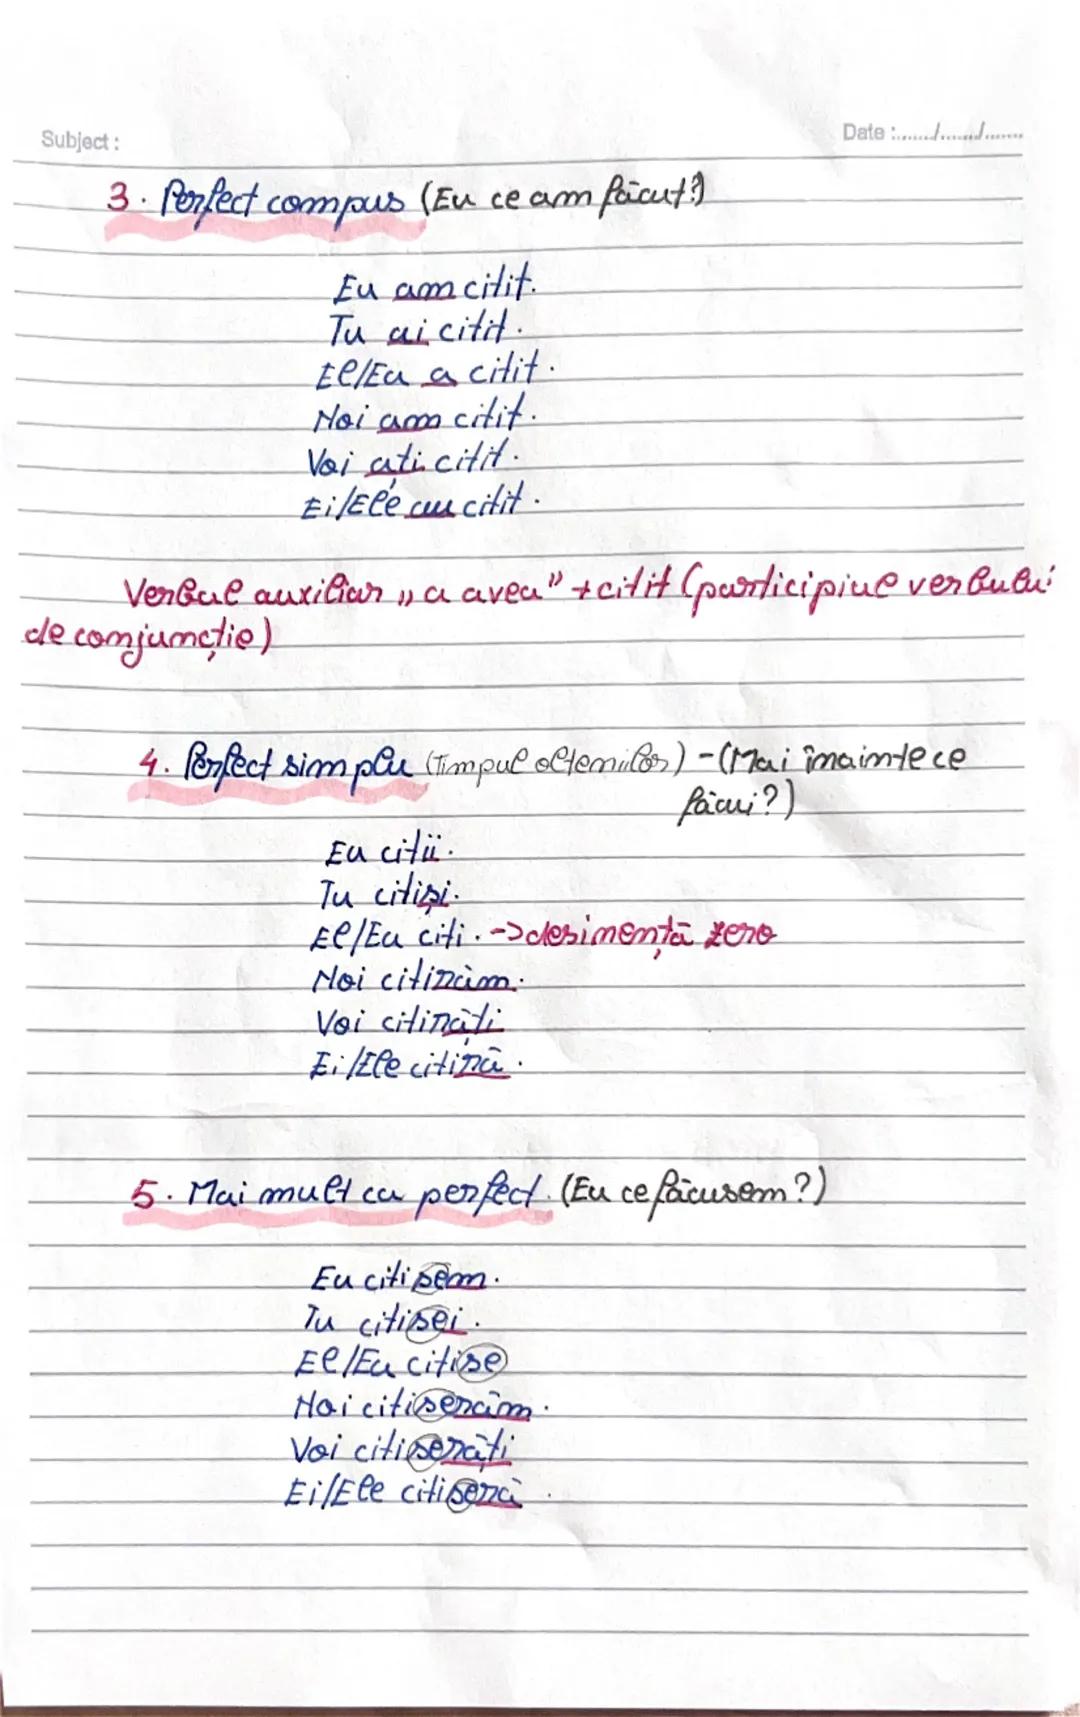 Subject :
Date :......./......./.......
3. Perfect compus (Eu ce am făcut?)
Eu am citit.
Tu ai citit.
El/Ea a citit.
Noi am citit.
Voi ați citit.
Ei/Ele au citit.
Verbul auxiliar „a avea" + citit (participiul verbului
de conjuncție)
4. Perfect simplu (Timpul oltenilor) - (Mai înainte ce
făcui?)
Eu citii.
Tu citiși.
El/Ea citi. -> desinență zero
Noi citirăm.
Voi citirăți
Ei/Ele citiră.
5. Mai mult ca perfect. (Eu ce făcusem?)
Eu citisem.
Tu citisei.
El/Ea citise
Noi citiserăm.
Voi citiserăți
Ei/Ele citiseră.